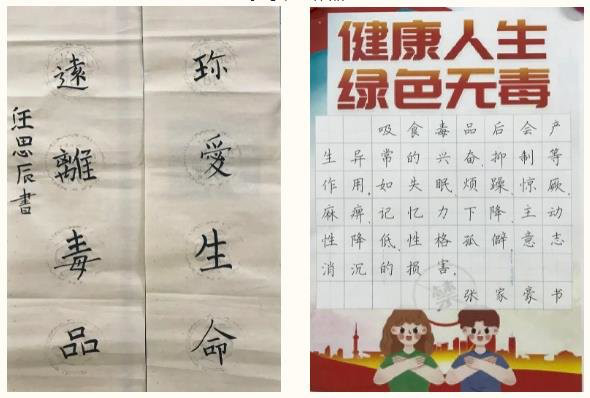 珍愛生命
遠離毒品
汪思辰書
健康人生
绿色无毒
吸食毒品后会产
生异常的兴奋、抑制等
作用，如失眠、烦躁、惊厥、
麻痹、记忆力下降、主动
性降低、性格孤僻、意志
消沉的损害。
张家豪书